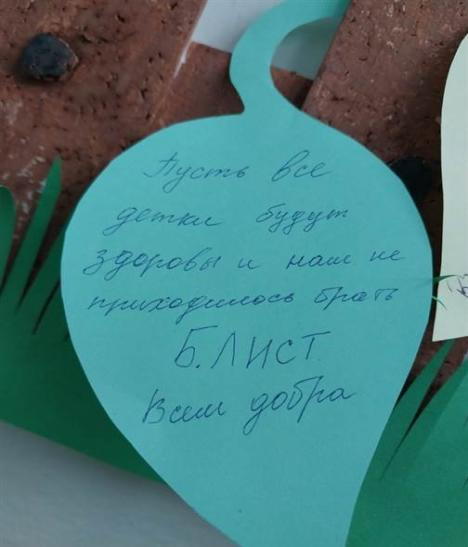 Пусть все
детки будут
здоровы и нам не
приходилось брать
Б.ЛИСТ.
Всем добра